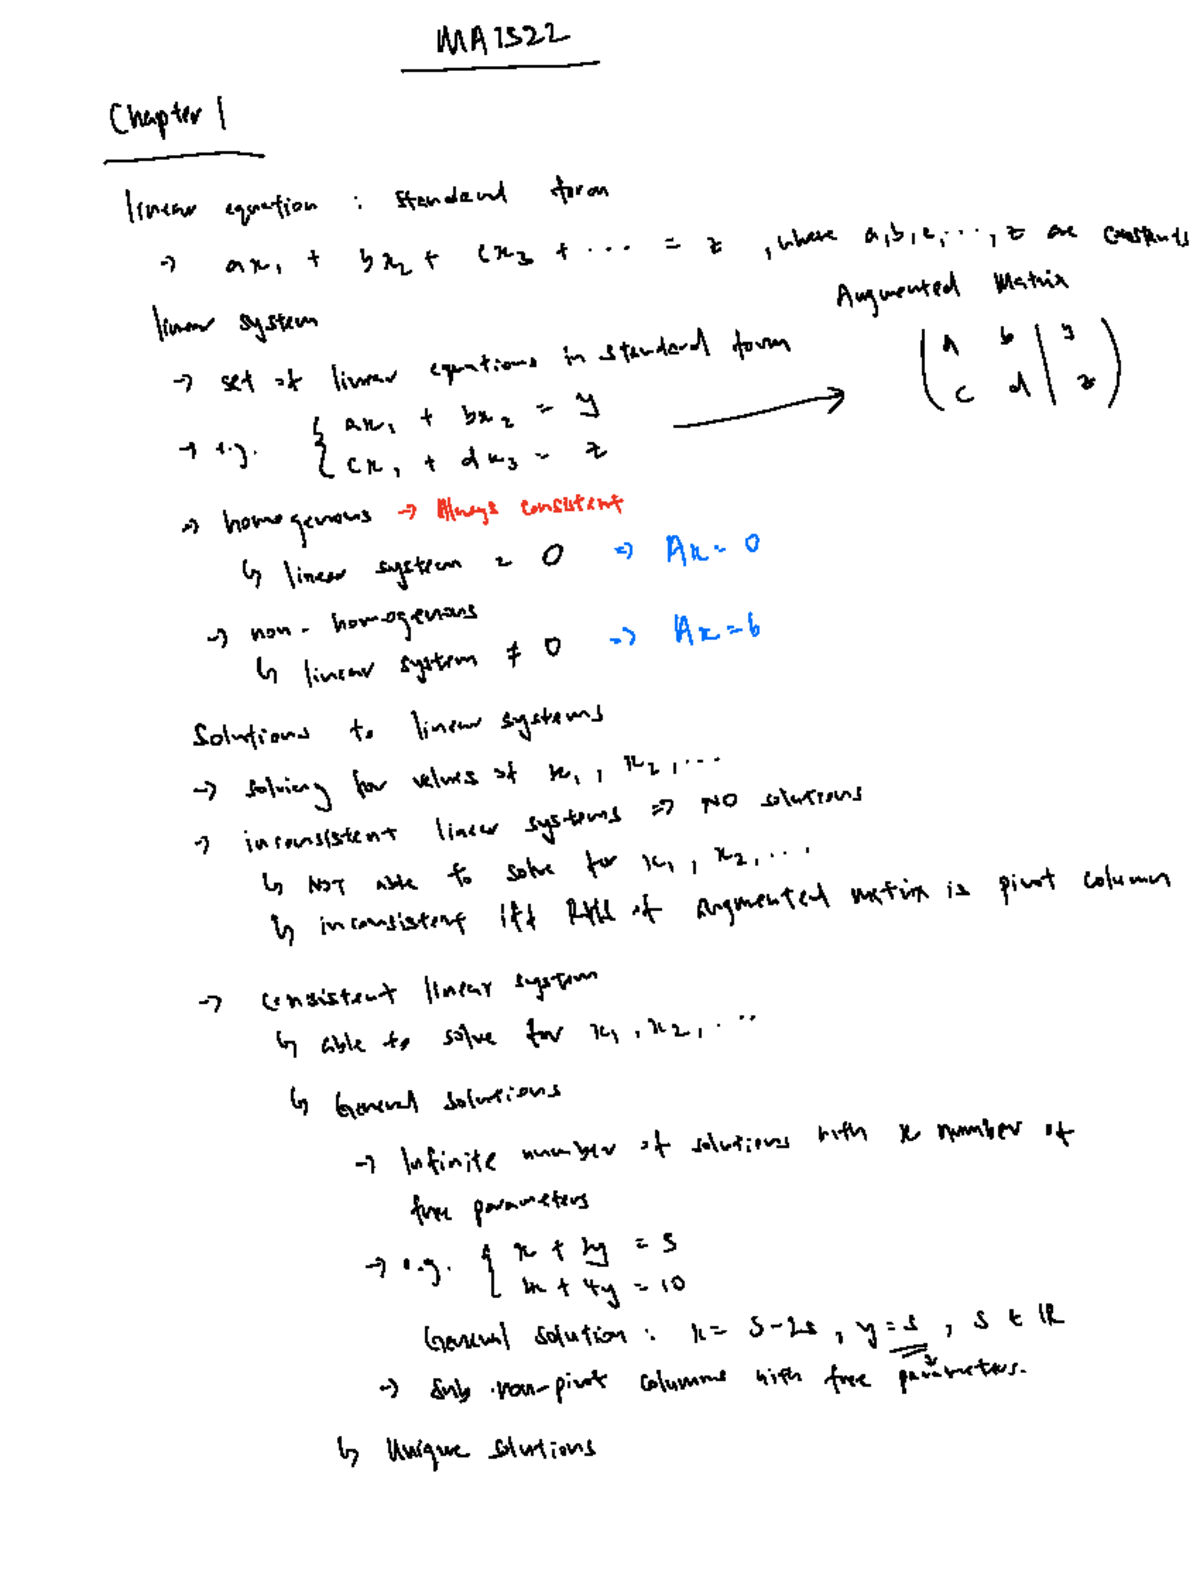 MA1522
Chapter 1
linear equation : standard form
→ ax₁ + bx₂ + cx₃ + ... = z , where a,b,c,...,z are constants
Augmented Matrix
linear system
→ set of linear equations in standard form
→ e.g. { ax₁ + bx₂ = y
cx₁ + dx₃ = z
( a b | y
c d | z )
→ homogenous → Always consistent
↳ linear system = 0 => Ax = 0
→ non-homogenous
↳ linear system ≠ 0 => Ax = b
Solutions to linear systems
→ solving for values of x₁, x₂, ...
→ inconsistent linear systems => NO solutions
↳ NOT able to solve for x₁, x₂, ...
↳ inconsistent iff RHS of augmented matrix is pivot column
→ consistent linear system
↳ able to solve for x₁, x₂, ...
↳ General solutions
→ Infinite number of solutions with x number of
free parameters
→ e.g. { x + 2y = 5
2x + 4y = 10
General solution : x = 5-2s , y = s , s ∈ ℝ
→ Sub non-pivot columns with free parameters.
↳ Unique solutions